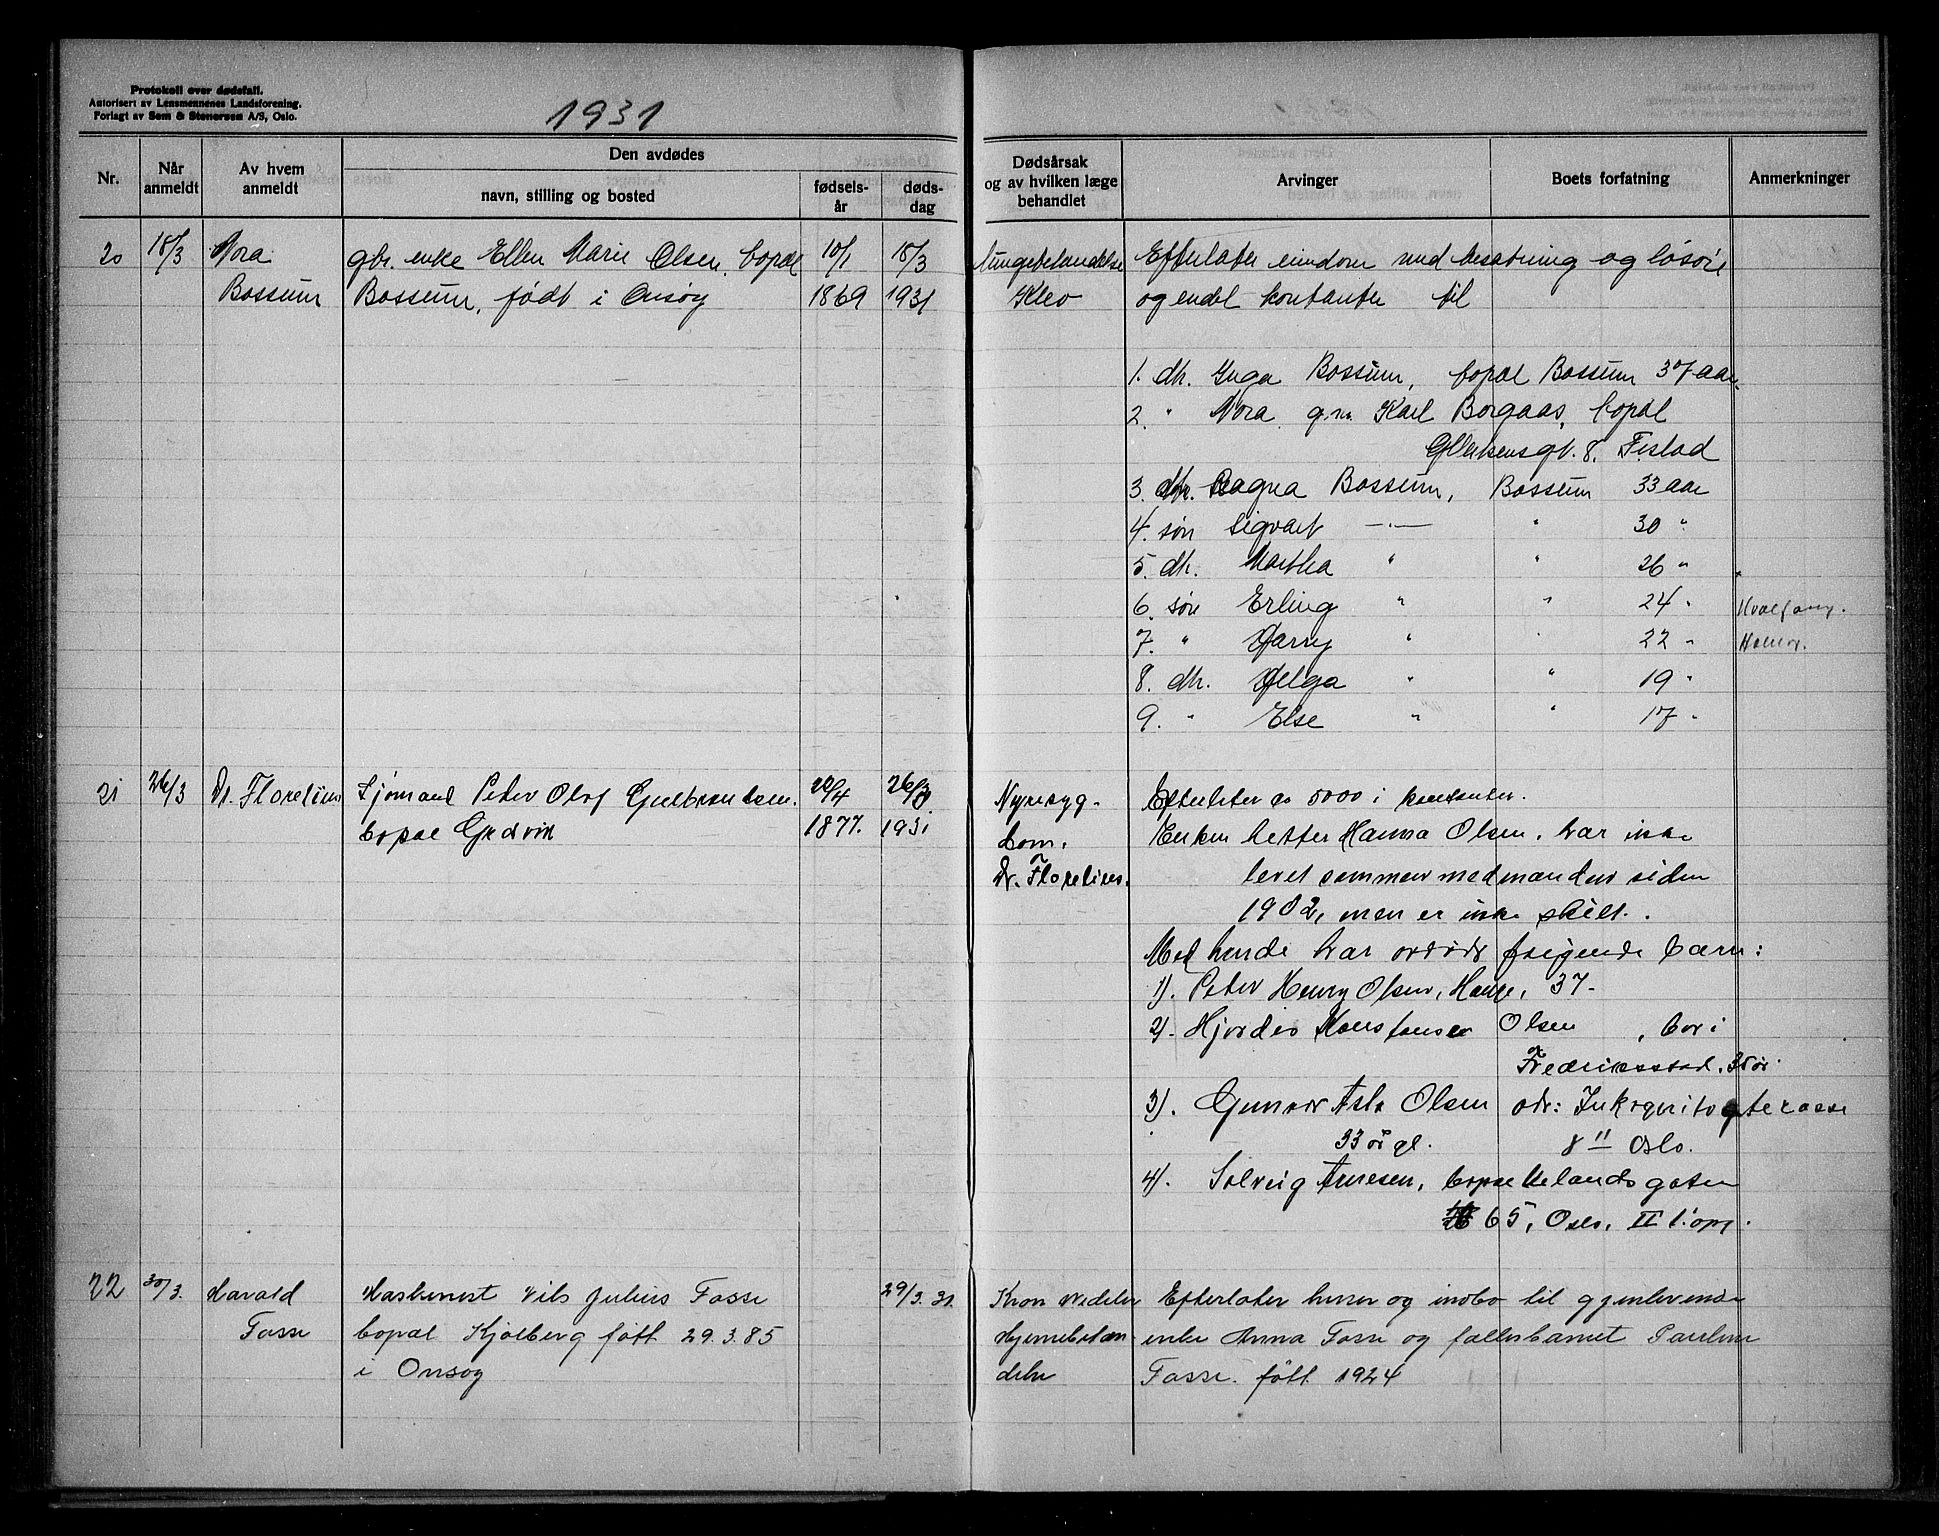 Protokoll over dødsfall.
Autorisert av Lensmennenes Landsforening.
Forlagt av Sem & Stenersen A/S, Oslo.
1931
Nr.
Når anmeldt
Av hvem anmeldt
Den avdødes
navn, stilling og bosted
fødsels-år
døds-dag
Dødsårsak og av hvilken læge behandlet
Arvinger
Boets forfatning
Anmerkninger
20 18/3 Nora gbr. enke Ellen Marie Olsen, bopæl 10/1 18/3 lungebetændelse Efterlater eiendom med besætning og løsøre
Bossum Bossum, født i Onsøy 1869 1931 Klev og endel kontanter til
1. dtr. Inga Bossum, bopæl Bossum 37 aar
2. " Nora g.m. Karl Borgaas, bopæl
8. Fr.stad
3. dtr. Ragna Bossum, Bossum 33 aar
4. søn Sigvart —"— " 30 "
5. dtr. Martha " " 26 "
6. søn Erling " " 24 " Hvalfang.
7. " Harry " " 22 "
8. dtr. Helga " " 19 "
9. " Else " " 17 "
21 26/3 Dr. Florelius Sjømand Peter Olaf Gulbrandsen 20/4 26/3 Nyresyg- Efterlater ca 5000 i kontanter.
bopæl 1877. 1931 dom. Enken hetter Hanna Olsen, har ikke
Dr. Florelius. levet sammen med manden siden
1902, men er ikke skilt.
Med hende har avdøde følgende barn:
1). Peter Henry Olsen, Hauge, 37-
2). Hjordis Konstanse Olsen, bor i
Fredriksstad, 35 år.
3). Gunnar Asla Olsen adr: Inkognitogterasse
33 år gl. 8 II Oslo.
4). Solveig Arnesen, bopæl Uelandsgaten
65, Oslo, II
22 30/3. Harald Maskinist Nils Julius Fosse 29/3. 31. Kron Efterlater huser og indbo til gjenlevende
Fosse bopæl Kjølberg født 29.3.85 Hjernebetæn- enke Anna Fosse og fellesbarnet
i Onsøy delse Fosse. født 1924